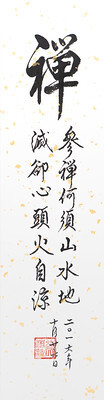 禅
參禅何須山水地
滅卻心頭火自涼
二〇一六年
十月十日